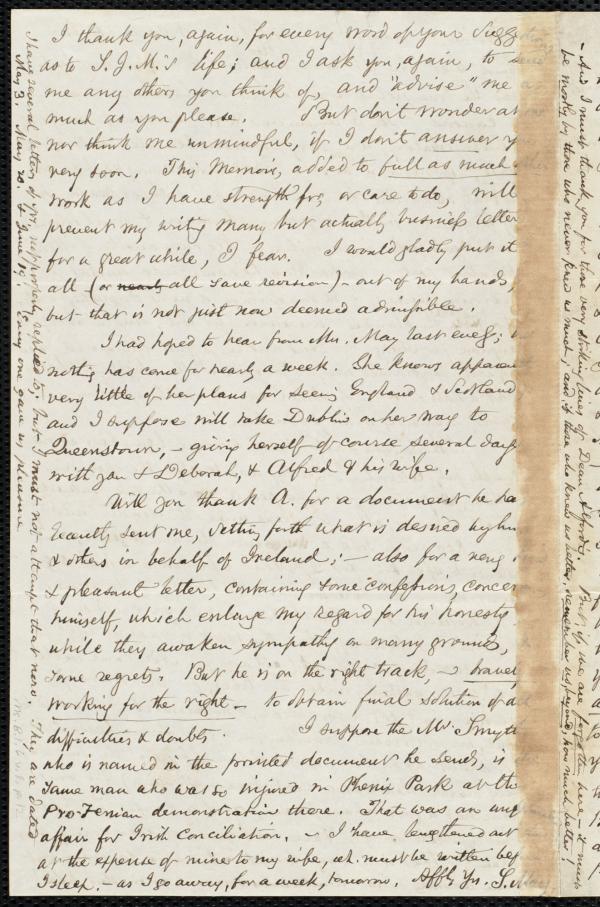 I thank you, again, for every word of your Sugg
as to S. J. M.'s life; and I ask you, again, to send
me any others you think of, and "advise" me as
much as you please. But don't wonder at
nor think me unmindful, if I don't answer you
very soon. This Memoir, added to full as much
work as I have strength for, or care to do, will
prevent my writg many but actually business letter
for a great while, I fear. I would gladly put it
all (or nearly all save revision) – out of my hands,
but that is not just now deemed admissible.
I had hoped to hear from Mrs. May last eveg;
nothg has come for nearly a week. She knows apparent
very little of her plans for seeing England & Scotland,
and I suppose will take Dublin on her way to
Queenstown, – giving herself of course several days
with you & Deborah, & Alfred & his wife.
Will you thank A. for a document he ha
recently sent me, setting forth what is desired by him
& others in behalf of Ireland; – also for a very
& pleasant letter, containing some confessions, concer
himself, which enlarge my regard for his honesty
while they awaken sympathy on many grounds, &
some regrets. But he is on the right track, – bravely
working for the right – to obtain final solution of all
difficulties & doubts. I suppose the Mr. Smyth
who is named in the printed document he sends, is the
same man who was so injured in Phenix Park at the
Pro-Fenian demonstration there. That was an
affair for Irish Conciliation. – I have lengthened out
at the expense of mine to my wife, wh. must be written bef
I sleep, – as I go away, for a week, tomorrow. Affly Yrs. S. May
I have several letters of yrs, supposedly replied to; but I must not attempt that now. They are dated
May 3. May 28. & June 19. Every one gave us pleasure
– And I must thank you for those very striking lines of Dean Alford's. But, if we are forgotten here – it must
be mostly by those who never knew us much; and, if those who knew us better, remember us beyond, how much better!